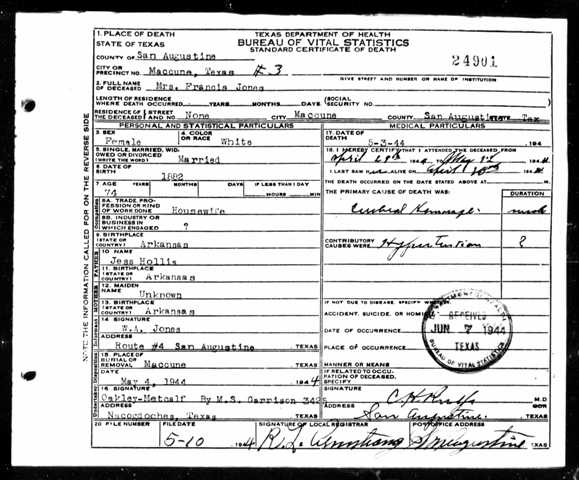 1. PLACE OF DEATH
STATE OF TEXAS
TEXAS DEPARTMENT OF HEALTH
BUREAU OF VITAL STATISTICS
STANDARD CERTIFICATE OF DEATH
24901
COUNTY OF San Augustine
CITY OR
PRECINCT NO. Maccune, Texas #3
GIVE STREET AND NUMBER OR NAME OF INSTITUTION
2. FULL NAME
OF DECEASED Mrs. Francis Jones
LENGTH OF RESIDENCE
WHERE DEATH OCCURRED YEARS MONTHS DAYS
SOCIAL
SECURITY NO.
RESIDENCE OF STREET
THE DECEASED AND NO. None CITY Maccune COUNTY San Augustine STATE Tex
PERSONAL AND STATISTICAL PARTICULARS
MEDICAL PARTICULARS
3. SEX
Female
4. COLOR
OR RACE
White
17. DATE OF
DEATH
5-3-44 194
5. SINGLE, MARRIED, WID-
OWED OR DIVORCED
(WRITE THE WORD) Married
18. I HEREBY CERTIFY THAT I ATTENDED THE DECEASED FROM
April
I LAST SAW ALIVE ON April 194
6. DATE OF
BIRTH 1882
THE DEATH OCCURRED ON THE DATE STATED ABOVE AT M.
7. AGE YEARS MONTHS DAYS IF LESS THAN 1 DAY
74 HOURS MIN
THE PRIMARY CAUSE OF DEATH WAS:
DURATION
8A. TRADE, PRO-
FESSION OR KIND
OF WORK DONE Housewife
8B. INDUSTRY OR
BUSINESS IN
WHICH ENGAGED ?
9. BIRTHPLACE
(STATE OR
COUNTRY) Arkansas
CONTRIBUTORY
CAUSES WERE Hypertension ?
10. NAME
Jess Hollis
11. BIRTHPLACE
(STATE OR
COUNTRY) Arkansas
12. MAIDEN
NAME Unknown
13. BIRTHPLACE
(STATE OR
COUNTRY) Arkansas
IF NOT DUE TO DISEASE, SPECIFY WHETHER
ACCIDENT, SUICIDE, OR HOMICIDE
DATE OF OCCURRENCE
PLACE OF OCCURRENCE
MANNER OR MEANS
RECEIVED
JUN 7 1944
TEXAS
BUREAU OF VITAL STATISTICS
14. SIGNATURE
W.A. Jones
ADDRESS
Route #4 San Augustine TEXAS
15. PLACE OF
BURIAL OR
REMOVAL Maccune TEXAS
DATE
May 4, 1944 1944
IF RELATED TO OCCU-
PATION OF DECEASED,
SPECIFY
16. SIGNATURE
Oakley-Metcalf By M.S. Garrison 3425
ADDRESS
Nacogdoches, Texas TEXAS
SIGNATURE
M.D
ADDRESS
San Augustine.
20. FILE NUMBER
FILE DATE
5-10 1944
SIGNATURE OF LOCAL REGISTRAR
R. L. Armstrong
POST OFFICE ADDRESS
San Augustine TEXAS
NOTE THE INFORMATION CALLED FOR ON THE REVERSE SIDE
FATHER
MOTHER